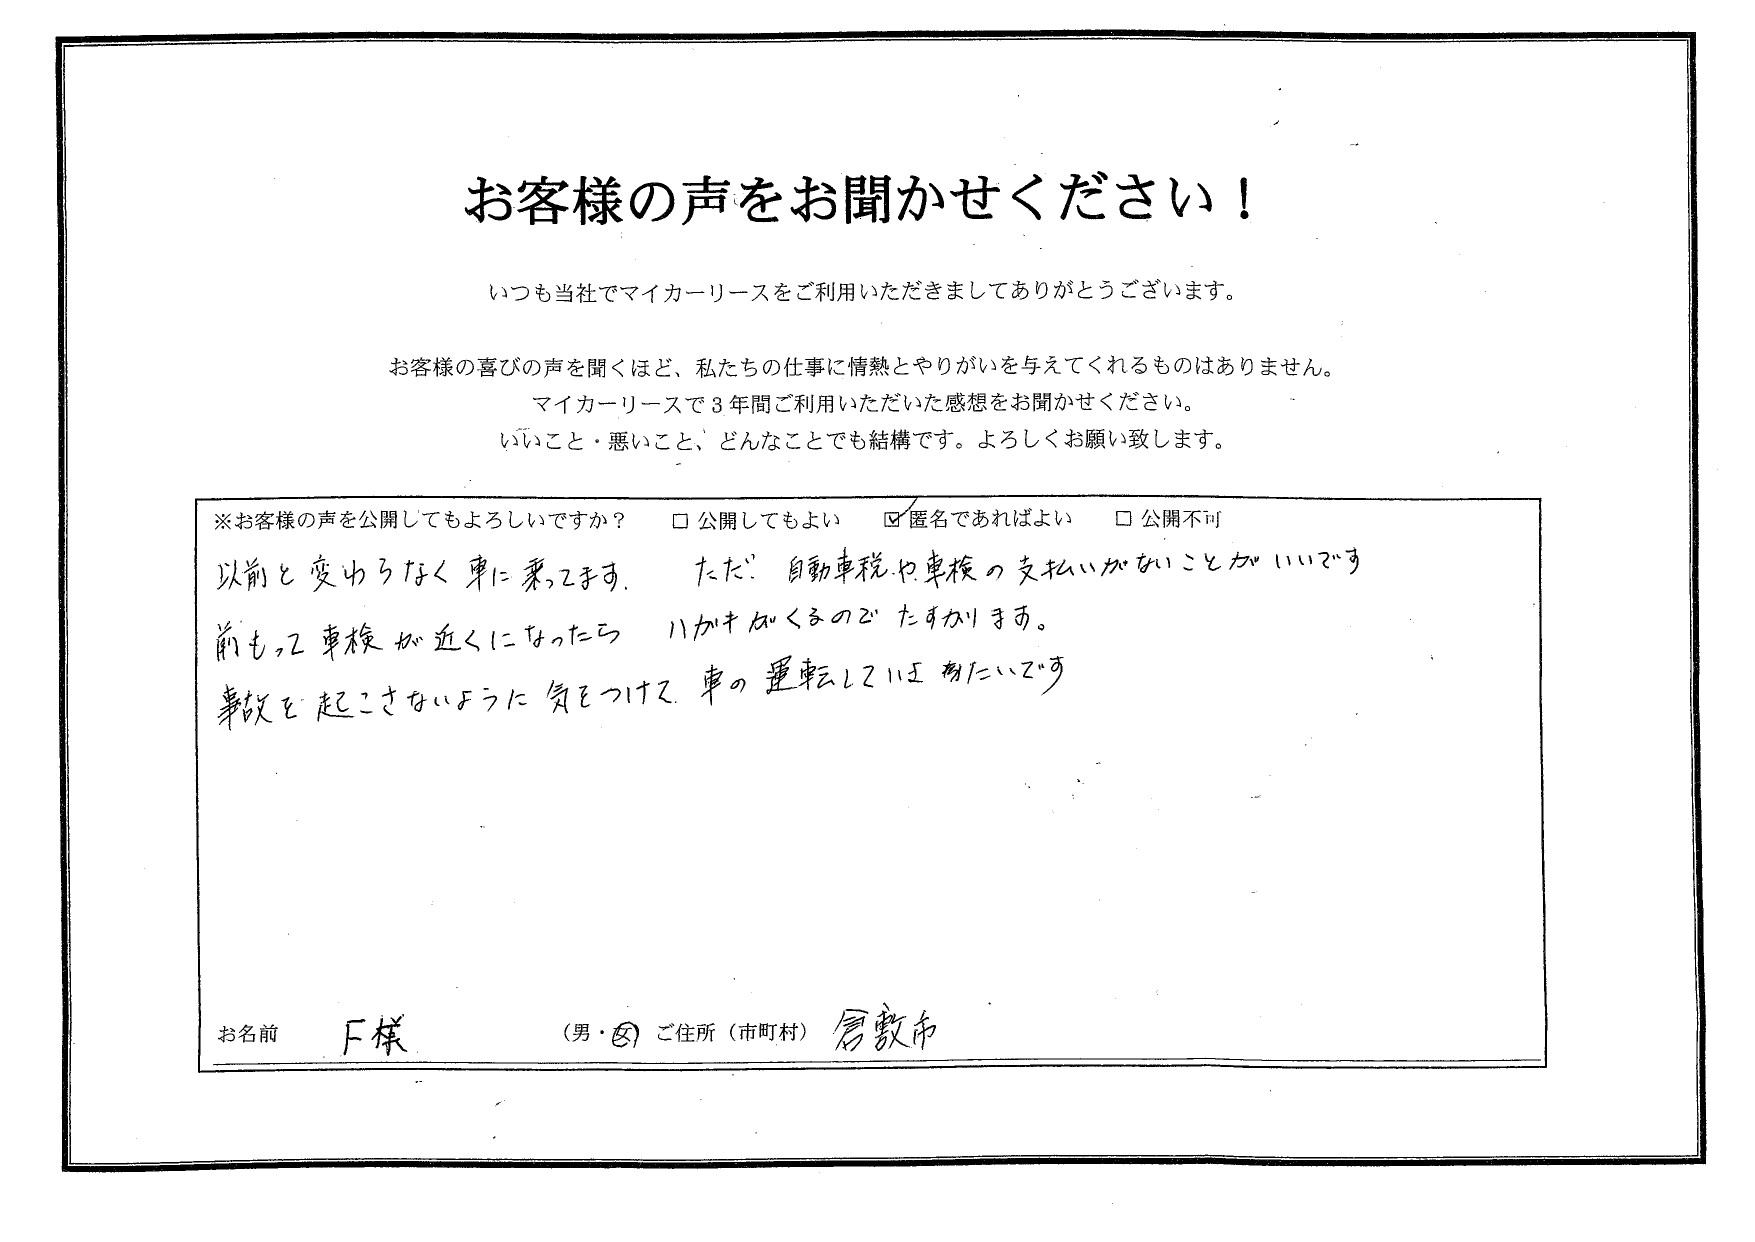 お客様の声をお聞かせください！
いつも当社でマイカーリースをご利用いただきましてありがとうございます。
お客様の喜びの声を聞くほど、私たちの仕事に情熱とやりがいを与えてくれるものはありません。
マイカーリースで３年間ご利用いただいた感想をお聞かせください。
いいこと・悪いこと、どんなことでも結構です。よろしくお願い致します。
※お客様の声を公開してもよろしいですか？ □ 公開してもよい ☑ 匿名であればよい □ 公開不可
以前と変わらなく車に乗ってます. ただ. 自動車税や車検の支払いがないことがいいです
前もって車検が近くになったら ハガキがくるのでたすかります。
事故を起こさないように気をつけて. 車の運転して たいです
お名前 F様 （男・女） ご住所（市町村） 倉敷市